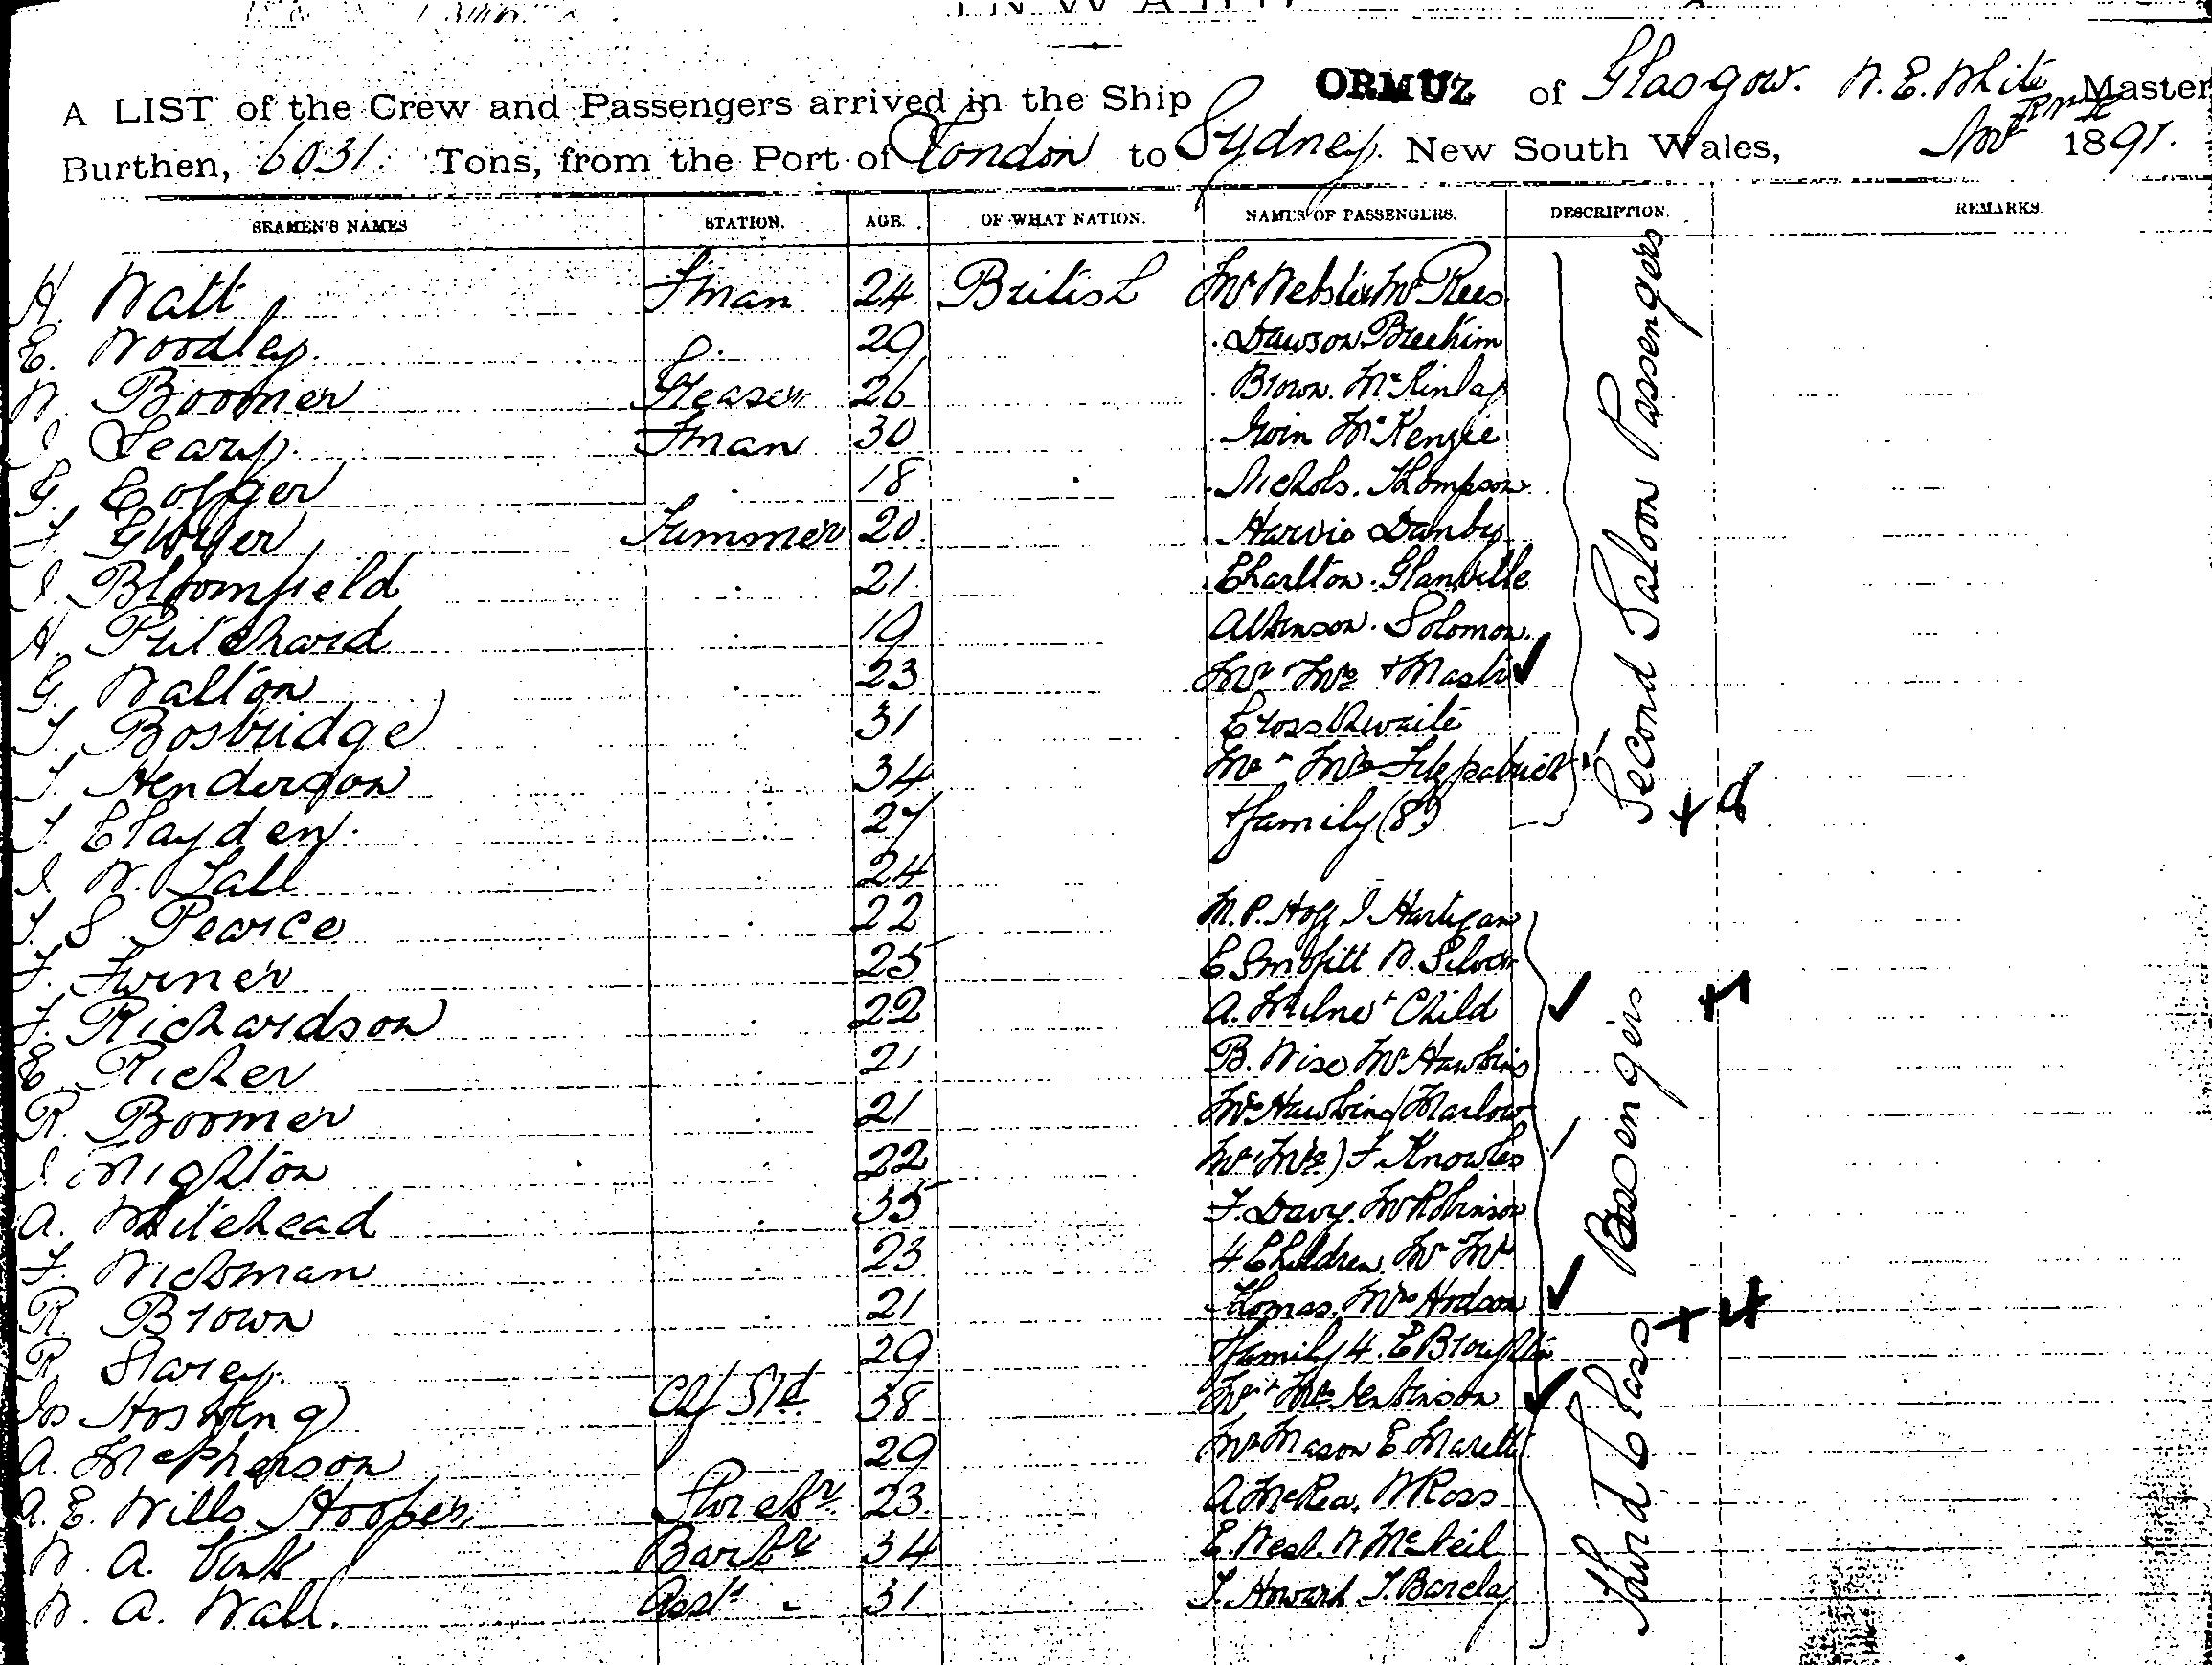 INWARD
A LIST of the Crew and Passengers arrived in the Ship ORMUZ of Glasgow. N. E. White Master
Burthen, 6031 Tons, from the Port of London to Sydney, New South Wales, 1891.
SEAMEN'S NAMES STATION. AGE. OF WHAT NATION. NAMES OF PASSENGERS. DESCRIPTION. REMARKS.
H. Watt Fman 24 British Mr Webster Mr Rees
E. Woodley. 29 Dawson
W. Boomer Greaser 26 Brown. McKinlay
J. Seary. Fman 30 McKenzie
G. 18 Nichols. Thompson
F. Trimmer 20 Harvie Danby
J. Bloomfield 21 Charlton. Glanville
H. Pritchard 19 Atkinson. Solomon.
G. Walton 23 Mr & Mrs & Mastr
T. Bosbridge 31 Crossthwaite
T. Henderson 34 Mr & Mrs Fitzpatrick
T. Clayden. 27 & family (8)
J. W. Lall 24
T. S. Pearce 22 M. P. Hogg J Hartigan
F. Turner 25 E W. Silver
F. Richardson 22 A. Milne & Child
E Richer 21 B. Wise Mr Hawkins
R. Boomer 21 Mrs Hawkins / Marlow
J. Wighton 22 Mr & Mrs) F. Knowles
A. Whitehead 35 F. Davy. Mr Robinson
F. Wickman 23 4 Children. Mr & Mrs
R Brown 21 Thomas. Mrs Hodson
R Slarey. 29 & family 4. E Broughton
Js Hosking Chf Std 38 Mr & Mrs Jenkinson
A. McPherson 29 Mr Mason E. Marett
A. E. Wills Hooper Storekr 23 A McRea, W Ross
W. A. Barkr 34 E. West. W McNeil
W. A. Wall. Asst 31 T. Howard T. Barclay
Second Saloon Passengers
Third Class Passengers